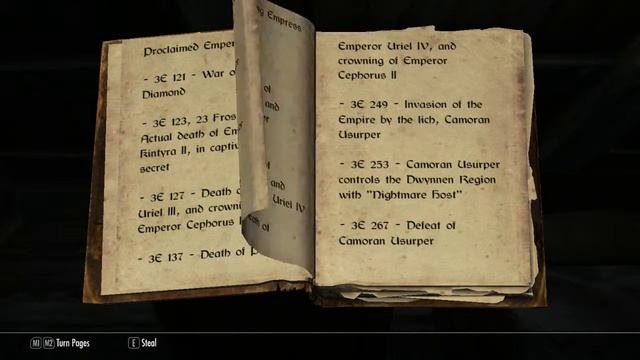 Proclaimed
- 3E 121 - War
Diamond
- 3E 123, 23
Actual death of
Kintyra II, in
secret
- 3E 127 - Death
Uriel III, and
Emperor Cephorus
- 3E 137 - Death of
Empress
of
and
and
Uriel IV
of
Emperor Uriel IV, and
crowning of Emperor
Cephorus II
- 3E 249 - Invasion of the
Empire by the lich, Camoran
Usurper
- 3E 253 - Camoran Usurper
controls the Dwynnen Region
with "Nightmare Host"
- 3E 267 - Defeat of
Camoran Usurper
M1 M2 Turn Pages
E Steal